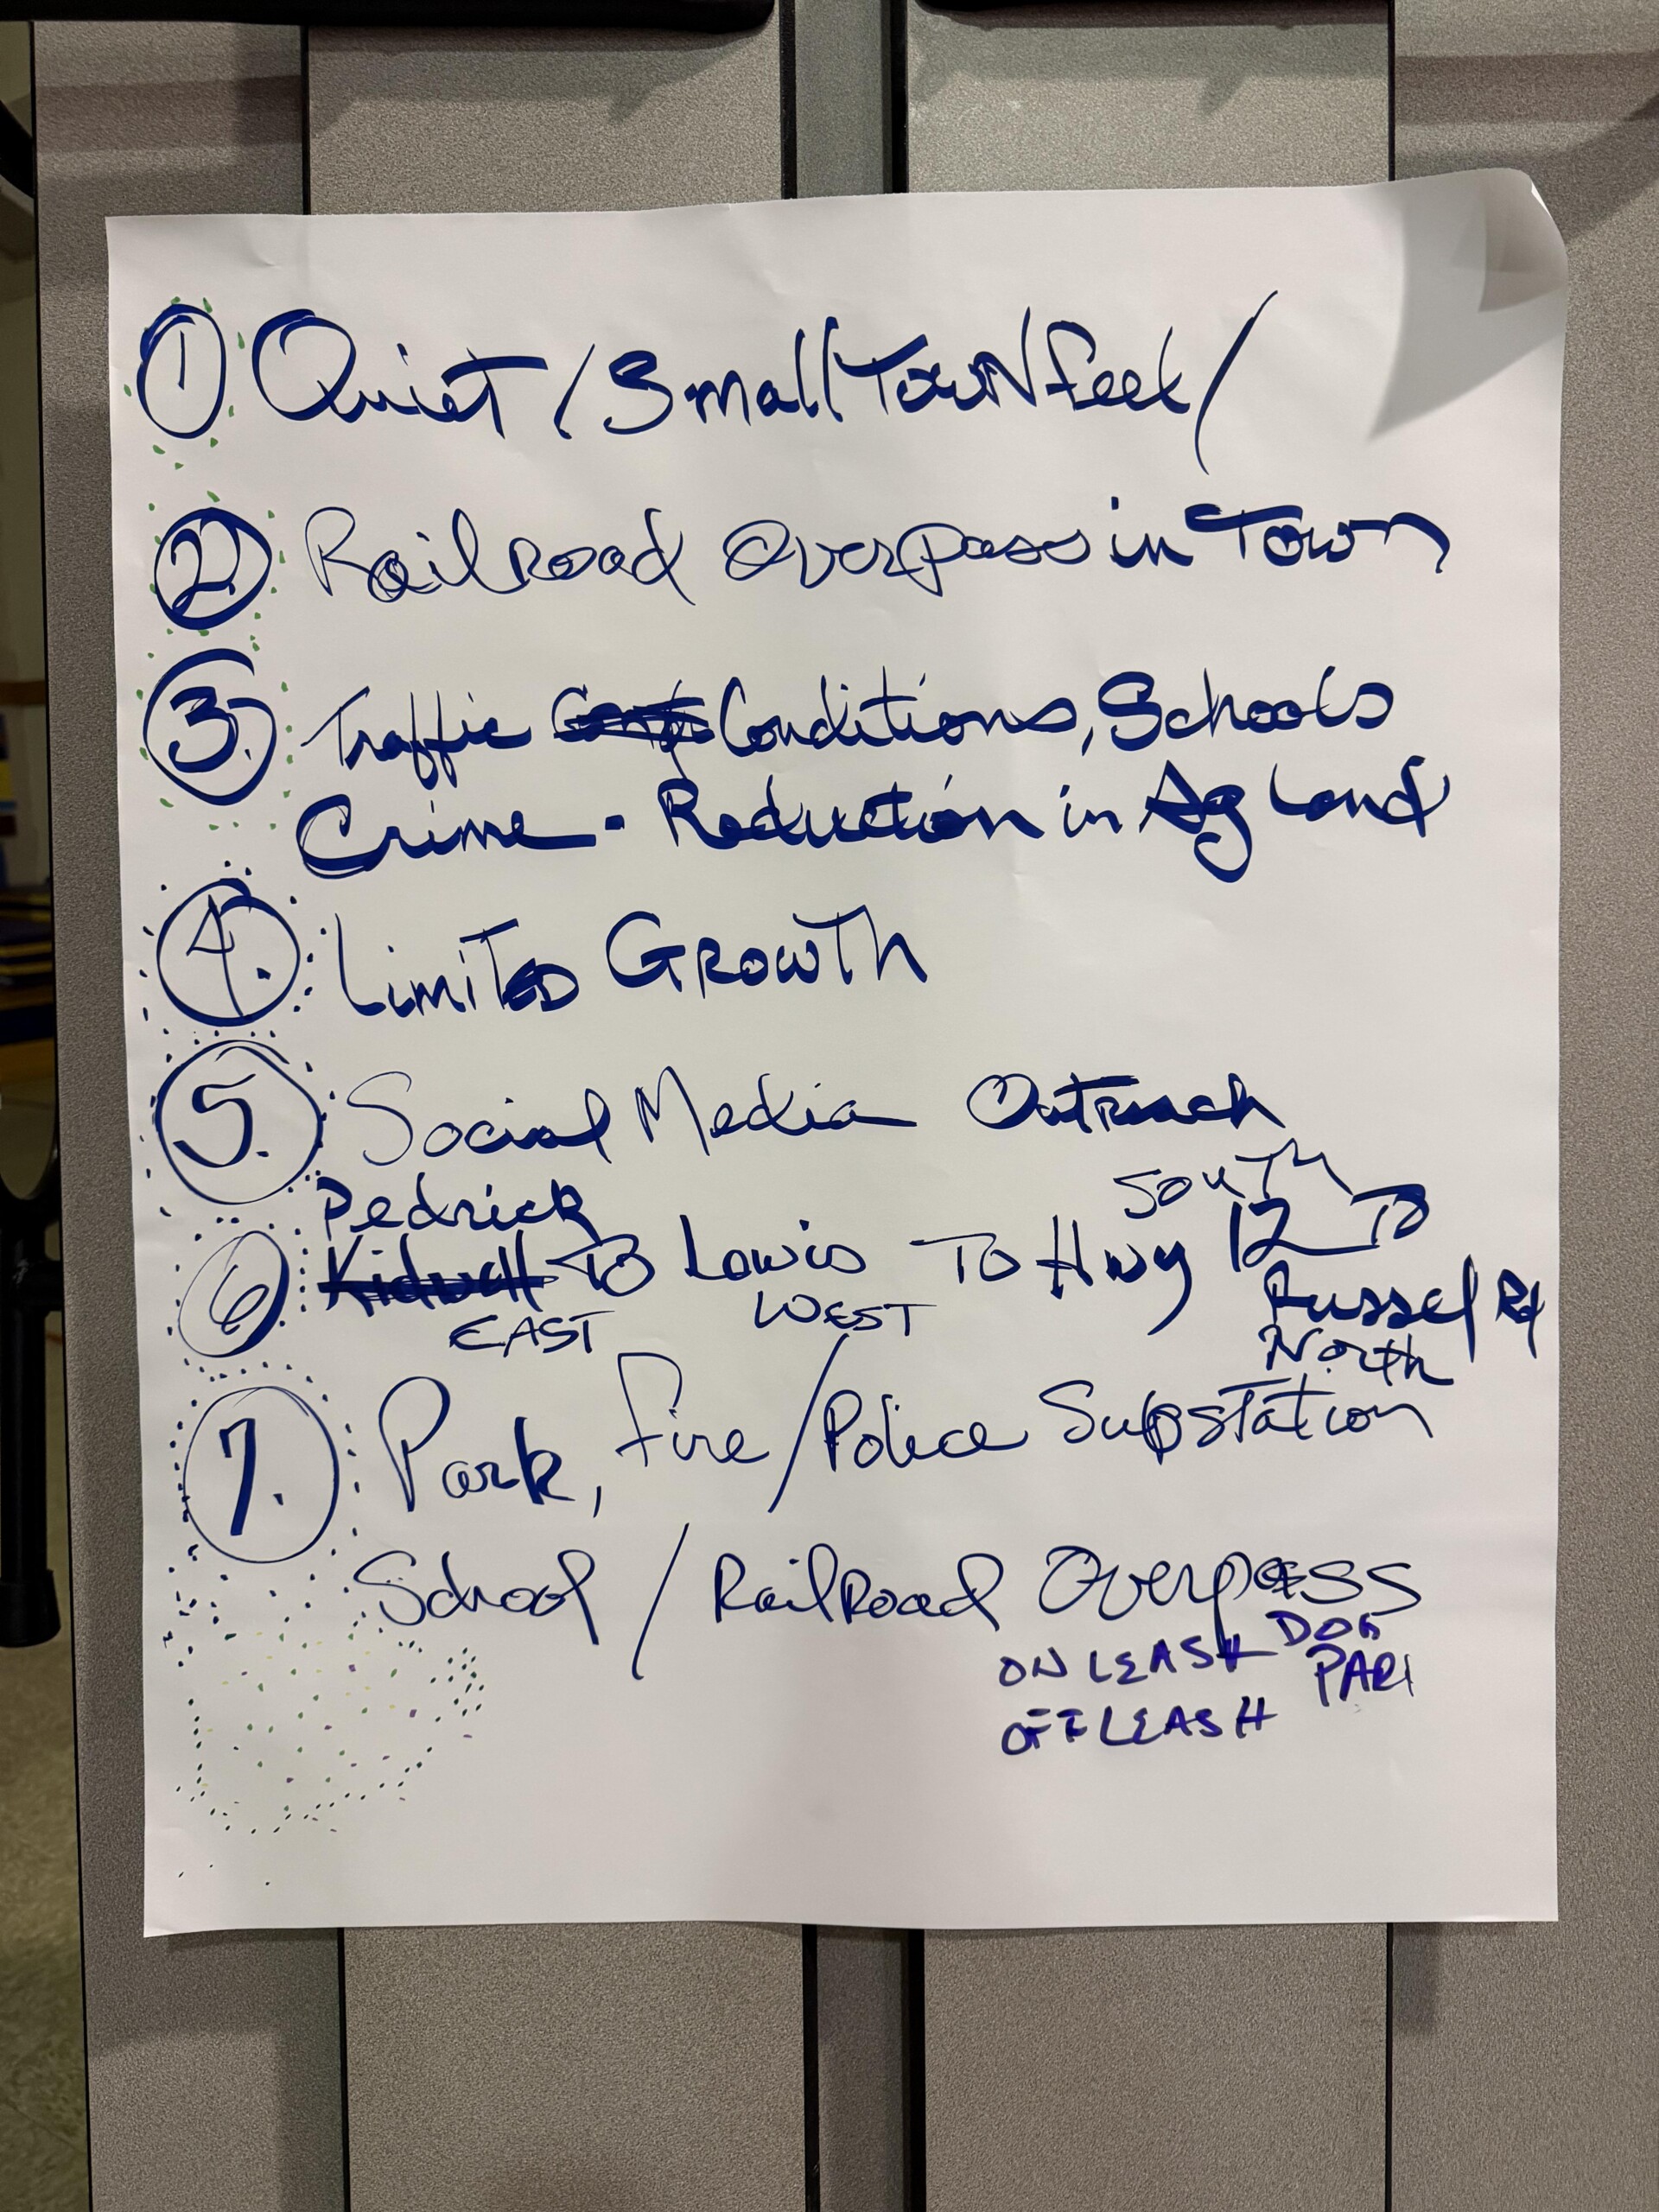 ① Quiet / Small Town feel /
② Railroad Overpass in Town
③. Traffic Conditions, Schools
Crime - Reduction in Ag Land
④. Limited Growth
⑤. Social Media Outreach
SOUTH
Pedrick
⑥ Kidwell To Lewis To Hwy 12 To
EAST WEST Russel Rd
North
⑦. Park, Fire / Police Supstation
School / Railroad Overpass
ON LEASH DOG
PARK
OFF LEASH